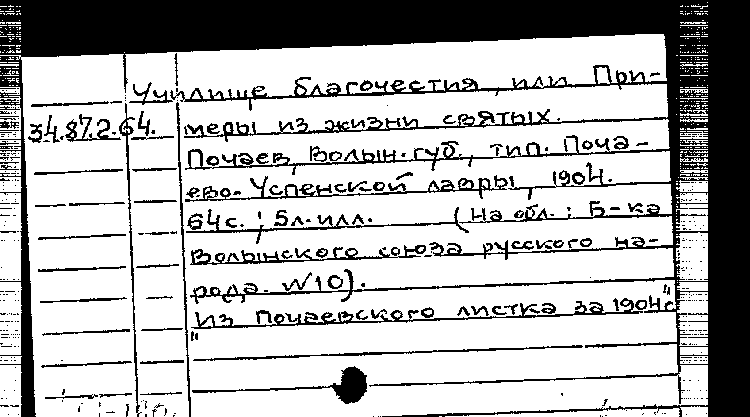 Училище благочестия, или При-
34.87.2.64. меры из жизни святых.
Почаев, Волын. губ., тип. Поча-
ево-Успенской лавры, 1904.
64 с.; 5 л. илл. (На обл.: Б-ка
Волынского союза русского на-
рода. N 10).
"Из Почаевского листка за 1904 г."